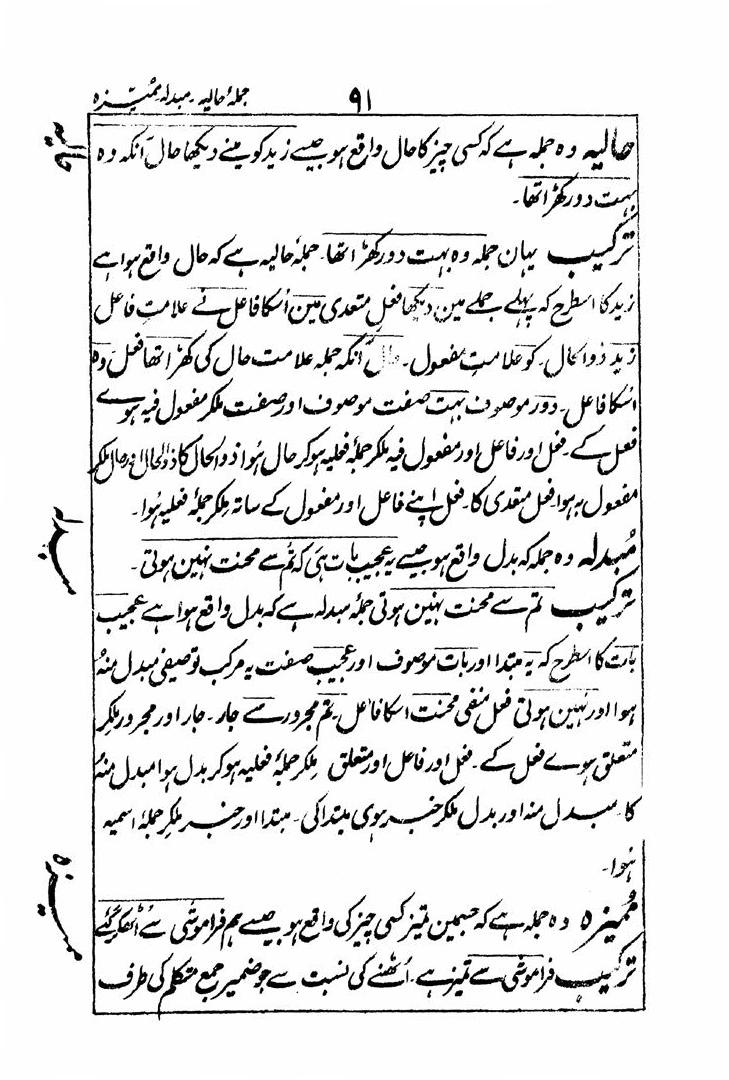 جملۂ حالیہ ۔ مبدلہ ممیزہ
۹۱
حالیہ
حالیہ وہ جملہ ہے کہ کسی چیز کا حال واقع ہو جیسے زید کو مینے دیکھا حال آنکہ وہ
بہت دور کھڑا تھا۔
ترکیب یہان جملہ وہ بہت دور کھڑا تھا۔ جملۂ حالیہ ہے کہ حال واقع ہوا ہے
زید کا اسطرح کہ پہلے جملے مین دیکھا فعل متعدی مین اُسکا فاعل نے علامتِ فاعل
زید ذوالحال۔ کو علامتِ مفعول۔ حال آنکہ جملہ علامت حال کی کھڑا تھا فعل وہ
اُسکا فاعل۔ دور موصوف بہت صفت موصوف اور صفت ملکر مفعول فیہ ہوے
فعل کے۔ فعل اور فاعل اور مفعول فیہ ملکر جملۂ فعلیہ ہو کر حال ہُوا ذوالحال کا ذوالحال اور حال ملکر
مفعول بہ ہوا۔ فعل متعدی کا۔ فعل اپنے فاعل اور مفعول کے ساتہ ملکر جملہ فعلیہ ہُوا۔
مبدلہ
مُبدلہ وہ جملہ کہ بدل واقع ہو جیسے یہ عجیب بات ہی کہ تُم سے محنت نہین ہوتی۔
ترکیب تم سے محنت نہین ہوتی جملہ مبدلہ ہے کہ بدل واقع ہوا ہے عجیب
بات کا اسطرح کہ یہ مبتدا اور بات موصوف اور عجیب صفت یہ مرکب توصیفی مبدل منہُ
ہوا اور نہین ہوتی فعل منفی محنت اسکا فاعل۔ تم مجرور سے جار۔ جار اور مجرور ملکر
متعلق ہوے فعل کے۔ فعل اور فاعل اور متعلق ملکر جملۂ فعلیہ ہو کر بدل ہوا مبدل منہُ
کا۔ مبدل منہ اور بدل ملکر خبر ہوی مبتدا کی۔ مبتدا اور خبر ملکر جملۂ اسمیہ
ہُوا۔
ممیزہ
مُمیزہ وہ جملہ ہے کہ جسمین تمیز کسی چیز کی واقع ہو جیسے ہم فراموشی سے اُٹھکر گئے
ترکیب فراموشی سے تمیز ہے۔ اُٹھنے کی نسبت سے جو ضمیر جمع متکلم کی طرف